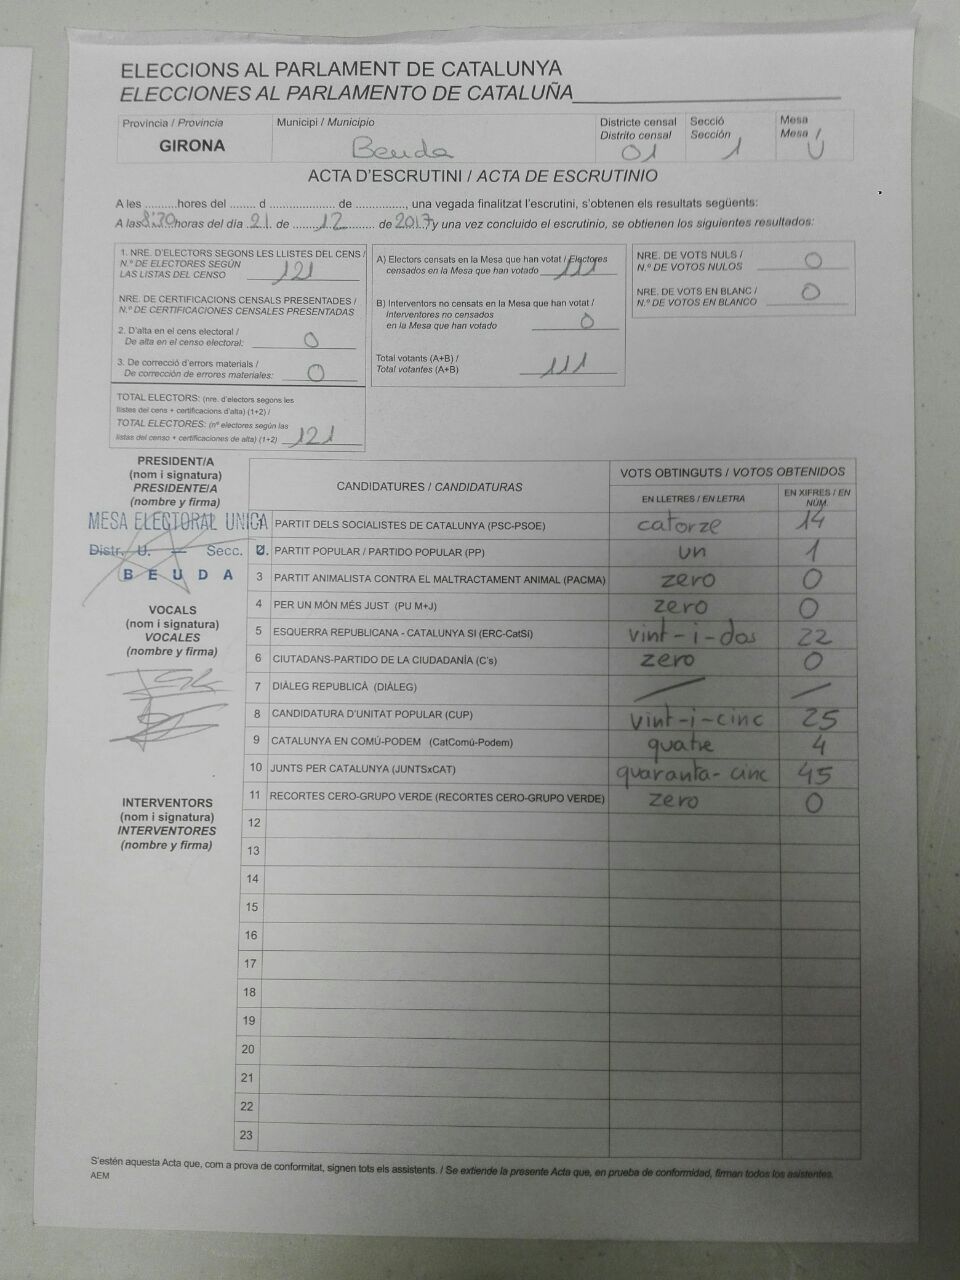 ELECCIONS AL PARLAMENT DE CATALUNYA
ELECCIONES AL PARLAMENTO DE CATALUÑA
Província / Provincia
GIRONA
Municipi / Municipio
Beuda
Districte censal
Distrito censal
01
Secció
Sección
1
Mesa
Mesa
U
ACTA D'ESCRUTINI / ACTA DE ESCRUTINIO
A les ..........hores del ........ d ..................... de ..............., una vegada finalitzat l'escrutini, s'obtenen els resultats següents:
A las 8:30 horas del día 21 de 12 de 2017 y una vez concluido el escrutinio, se obtienen los siguientes resultados:
1. NRE. D'ELECTORS SEGONS LES LLISTES DEL CENS /
N.º DE ELECTORES SEGÚN
LAS LISTAS DEL CENSO 121
NRE. DE CERTIFICACIONS CENSALS PRESENTADES /
N.º DE CERTIFICACIONES CENSALES PRESENTADAS
2. D'alta en el cens electoral /
De alta en el censo electoral: 0
3. De correcció d'errors materials /
De corrección de errores materiales: 0
TOTAL ELECTORS: (nre. d'electors segons les
llistes del cens + certificacions d'alta) (1+2) /
TOTAL ELECTORES: (nº electores según las
listas del censo + certificaciones de alta) (1+2) 121
A) Electors censats en la Mesa que han votat / Electores
censados en la Mesa que han votado 111
B) Interventors no censats en la Mesa que han votat /
Interventores no censados
en la Mesa que han votado 0
Total votants (A+B) /
Total votantes (A+B) 111
NRE. DE VOTS NULS /
N.º DE VOTOS NULOS 0
NRE. DE VOTS EN BLANC /
N.º DE VOTOS EN BLANCO 0
PRESIDENT/A
(nom i signatura)
PRESIDENTE/A
(nombre y firma)
MESA ELECTORAL UNICA
Distr. U. — Secc. U.
BEUDA
VOCALS
(nom i signatura)
VOCALES
(nombre y firma)
INTERVENTORS
(nom i signatura)
INTERVENTORES
(nombre y firma)
CANDIDATURES / CANDIDATURAS
VOTS OBTINGUTS / VOTOS OBTENIDOS
EN LLETRES / EN LETRA
EN XIFRES / EN NÚM.
PARTIT DELS SOCIALISTES DE CATALUNYA (PSC-PSOE) catorze 14
PARTIT POPULAR / PARTIDO POPULAR (PP) un 1
3 PARTIT ANIMALISTA CONTRA EL MALTRACTAMENT ANIMAL (PACMA) zero 0
4 PER UN MÓN MÉS JUST (PU M+J) zero 0
5 ESQUERRA REPUBLICANA - CATALUNYA SI (ERC-CatSí) vint-i-dos 22
6 CIUTADANS-PARTIDO DE LA CIUDADANÍA (C's) zero 0
7 DIÀLEG REPUBLICÀ (DIÀLEG) / /
8 CANDIDATURA D'UNITAT POPULAR (CUP) vint-i-cinc 25
9 CATALUNYA EN COMÚ-PODEM (CatComú-Podem) quatre 4
10 JUNTS PER CATALUNYA (JUNTSxCAT) quaranta-cinc 45
11 RECORTES CERO-GRUPO VERDE (RECORTES CERO-GRUPO VERDE) zero 0
12
13
14
15
16
17
18
19
20
21
22
23
S'estén aquesta Acta que, com a prova de conformitat, signen tots els assistents. / Se extiende la presente Acta que, en prueba de conformidad, firman todos los asistentes.
AEM